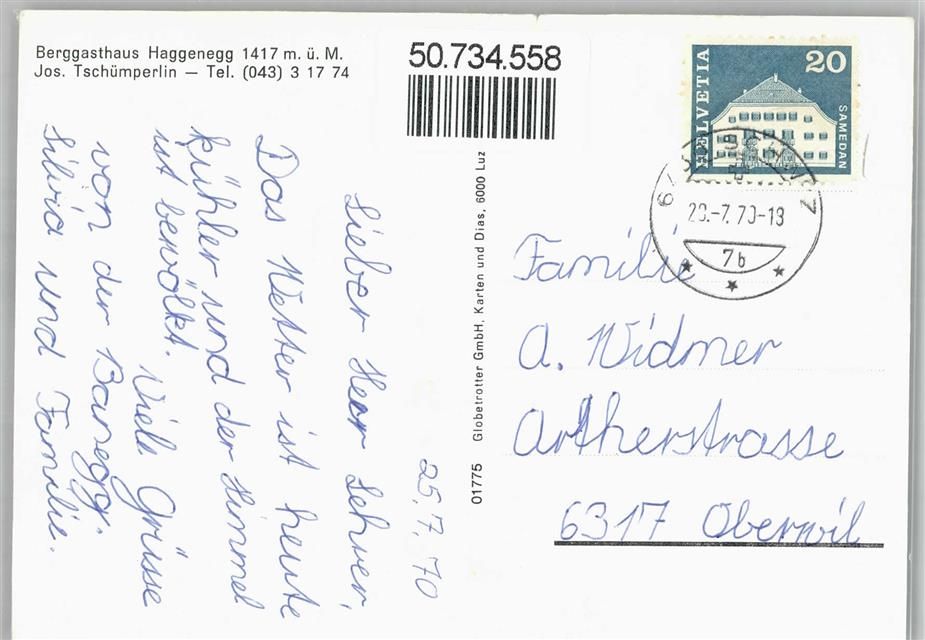 Berggasthaus Haggenegg 1417 m. ü. M.
Jos. Tschümperlin — Tel. (043) 3 17 74
50.734.558
HELVETIA
20
SAMEDAN
-7.70-18
7b
25.7.70
Lieber Herr Lehrer,
Das Wetter ist heute
kühler und der Himmel
ist bewölkt. Viele Grüsse
von der Banegg.
Silvia und Familie.
01775 Globetrotter GmbH, Karten und Dias, 6000 Luz
Familie
A. Widmer
Artherstrasse
6317 Oberwil